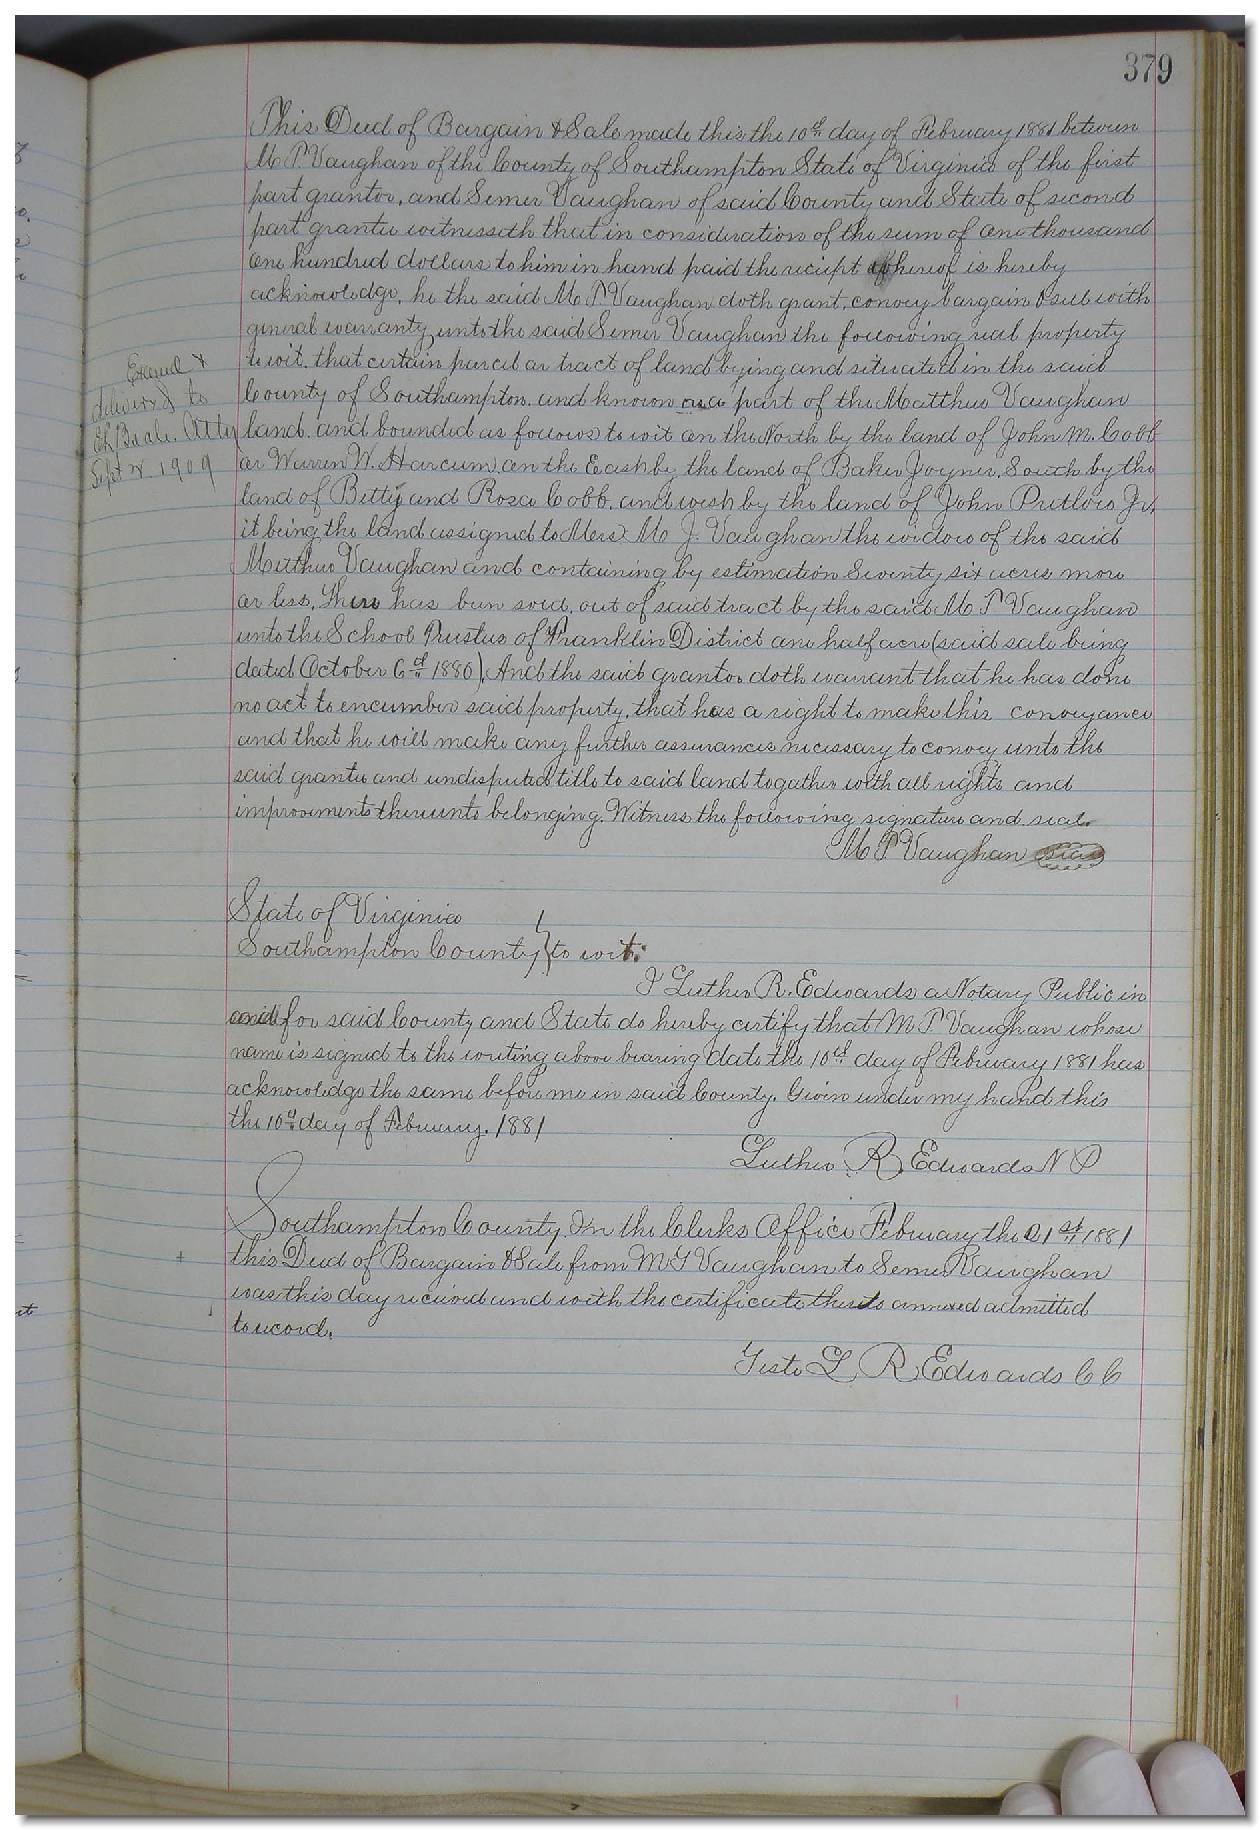 379
This Deed of Bargain & Sale made this the 10th day of February 1881 between
M P Vaughan of the County of Southampton State of Virginia of the first
part grantor, and Semer Vaughan of said County and State of second
part grantee witnesseth that in consideration of the sum of one thousand
one hundred dollars to him in hand paid the reciept whereof is hereby
acknowledge, he the said M. P. Vaughan doth grant, convey bargain & sell with
general warranty unto the said Semer Vaughan the following real property
to wit, that certain parcel or tract of land lying and situated in the said
County of Southampton, and known as a part of the Matthew Vaughan
land, and bounded as follows to wit on the North by the land of John M. Cobb
or Warren W. Harcum, on the East by the land of Baker Joyner, South by the
land of Betty and Rosa Cobb, and west by the land of John Pretlow Jr,
it being the land assigned to Mers. M J. Vaughan the widow of the said
Matthew Vaughan and containing by estimation Seventy six acres more
or less, There has been sold, out of said tract by the said M. P Vaughan
unto the School Trustees of Franklin District one half acre (said sale being
dated October 6th 1880). And the said grantor doth warrant that he has done
no act to encumber said property, that has a right to make this conveyance
and that he will make any further assurances necessary to convey unto the
said grantee and undisputed title to said land together with all rights and
improvements thereunto belonging. Witness the following signature and seal.
M P Vaughan seal
Examd &
delivered to
Beale. Atty
Sept 1909
State of Virginia
Southampton County } to wit:
I Luther R. Edwards a Notary Public in
and for said County and State do hereby certify that M P Vaughan whose
name is signed to the writing above bearing date the 10th day of February 1881 has
acknowledge the same before me in said County. Given under my hand this
the 10th day of February. 1881
Luther R Edwards N P
Southampton County. In the Clerks Office February the 21st 1881
this Deed of Bargain & Sale from M P Vaughan to Semer Vaughan
was this day received and with the certificate thereto annexed admitted
to record.
Teste L R Edwards C C